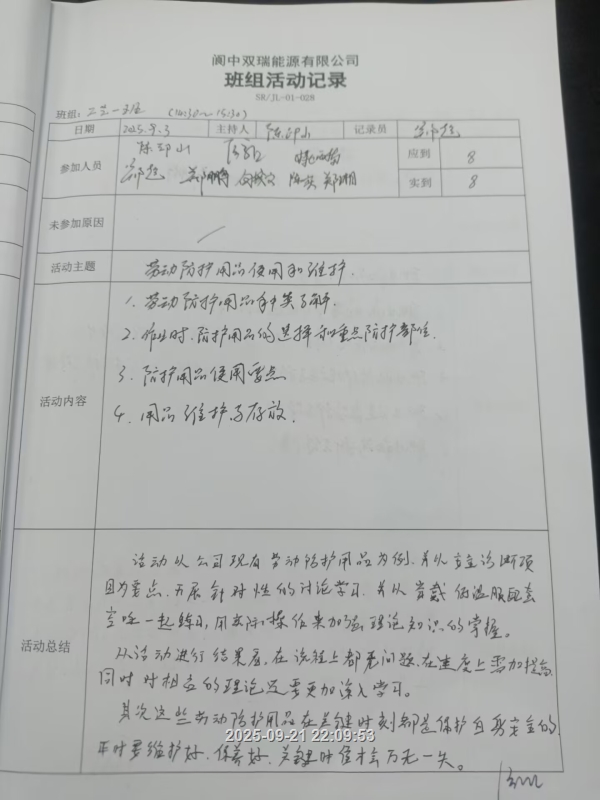 阆中双瑞能源有限公司
班组活动记录
SR/JL-01-028
班组: 工艺一班 (14:30~15:30)
日期 2025.9.3 主持人 记录员
参加人员 应到 8
郑湘 实到 8
未参加原因
活动主题 劳动防护用品使用和维护.
活动内容
1. 劳动防护用品种类了解.
2. 作业时.防护用品的选择和重点防护部位.
3. 防护用品使用要点
4. 用品维护与存放.
活动总结
该活动以公司现有劳动防护用品为例.并以安全诊断项
目为要点.开展针对性的讨论学习.并以穿戴低温服配套
一起练习.用实际操作来加强理论知识的掌握。
从活动进行结果看.在流程上都无问题.在速度上需加提高.
同时对相应的理论还需更加深入学习。
其次这些劳动防护用品在关键时刻都是保护自身安全的.
平时要维护好.保养好.关键时候才会万无一失。
2025-09-21 22:09:53